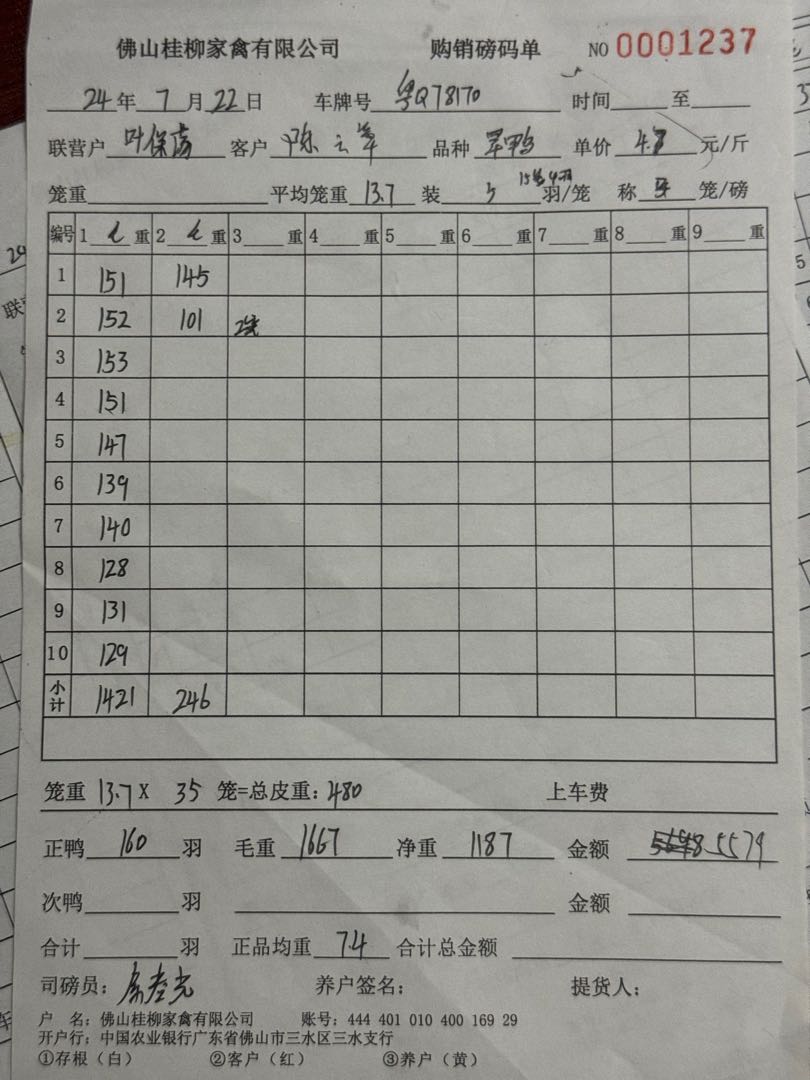 佛山桂柳家禽有限公司 购销磅码单 NO 0001237
24年 7月 22日 车牌号 粤Q78170 时间 至
联营户 叶保 客户 陈云 品种 鸭 单价 元/斤
笼重 平均笼重 13.7 装 5 羽/笼 称 笼/磅
编号 1 重 2 重 3 重 4 重 5 重 6 重 7 重 8 重 9 重
1 151 145
2 152 101 2笼
3 153
4 151
5 147
6 139
7 140
8 128
9 131
10 129
小计 1421 246
笼重 13.7 X 35 笼=总皮重: 480 上车费
正鸭 160 羽 毛重 1667 净重 1187 金额 5579
次鸭 羽 金额
合计 羽 正品均重 7.4 合计总金额
司磅员: 养户签名: 提货人:
户 名: 佛山桂柳家禽有限公司 账号: 444 401 010 400 169 29
开户行: 中国农业银行广东省佛山市三水区三水支行
①存根（白） ②客户（红） ③养户（黄）